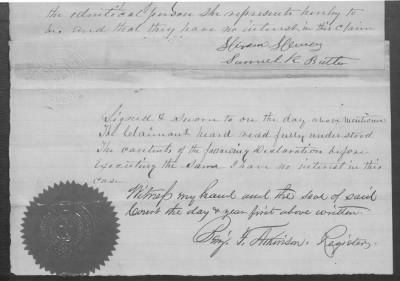 the identical person she represents hereby to
be and that they have no interest in this claim
Hiram Henery
Samuel K Butler
Signed & Sworn to on the day above mentioned
The Claimant heard read fully understood
The contents of the foregoing Declaration before
executing the same I have no interest in this
case
Witness my hand and the seal of said
Court the day & year first above written.
Benj. F. Atkinson. Register.